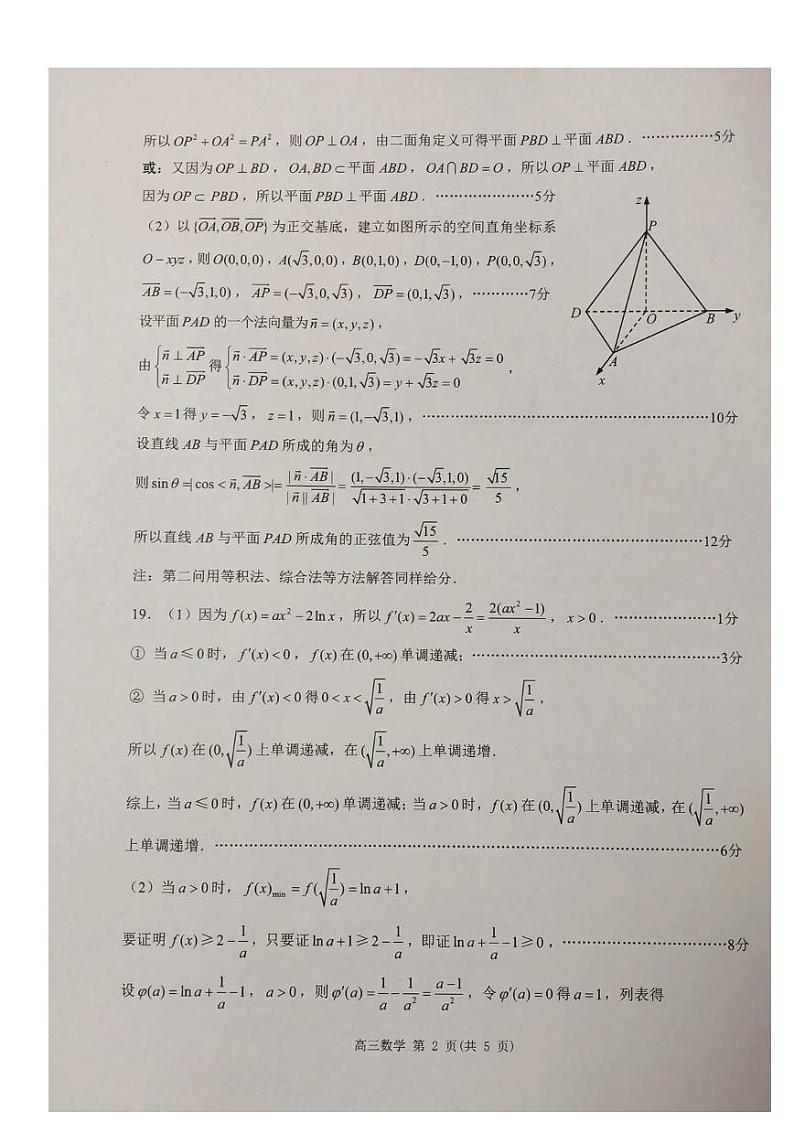 所以 OP² + OA² = PA²，则 OP ⊥ OA，由二面角定义可得平面 PBD ⊥ 平面 ABD．……………5分
或：又因为 OP ⊥ BD，OA, BD ⊂ 平面 ABD，OA∩BD = O，所以 OP ⊥ 平面 ABD，
因为 OP ⊂ PBD，所以平面 PBD ⊥ 平面 ABD．…………………5分
（2）以 {OA, OB, OP} 为正交基底，建立如图所示的空间直角坐标系
O − xyz，则 O(0,0,0)，A(√3,0,0)，B(0,1,0)，D(0,−1,0)，P(0,0,√3)，
AB = (−√3,1,0)，AP = (−√3,0,√3)，DP = (0,1,√3)，…………7分
设平面 PAD 的一个法向量为 n = (x, y, z)，
由 { n ⊥ AP, n ⊥ DP 得 { n · AP = (x, y, z)·(−√3,0,√3) = −√3x + √3z = 0, n · DP = (x, y, z)·(0,1,√3) = y + √3z = 0 ，
令 x = 1 得 y = −√3，z = 1，则 n = (1,−√3,1)，……………………………………………………10分
设直线 AB 与平面 PAD 所成的角为 θ，
则 sin θ =| cos < n, AB >|= | n · AB | / | n || AB | = (1,−√3,1)·(−√3,1,0) / √1+3+1·√3+1+0 = √15/5，
所以直线 AB 与平面 PAD 所成角的正弦值为 √15/5．……………………………………………12分
注：第二问用等积法、综合法等方法解答同样给分．
z
P
D
O
B
y
A
x
19．（1）因为 f(x) = ax² − 2ln x，所以 f′(x) = 2ax − 2/x = 2(ax² − 1)/x，x > 0．…………………1分
① 当 a ≤ 0 时，f′(x) < 0，f(x) 在 (0,+∞) 单调递减；……………………………………………3分
② 当 a > 0 时，由 f′(x) < 0 得 0 < x < √(1/a)，由 f′(x) > 0 得 x > √(1/a)，
所以 f(x) 在 (0,√(1/a)) 上单调递减，在 (√(1/a),+∞) 上单调递增．
综上，当 a ≤ 0 时，f(x) 在 (0,+∞) 单调递减；当 a > 0 时，f(x) 在 (0,√(1/a)) 上单调递减，在 (√(1/a),+∞)
上单调递增．……………………………………………………………………………………………6分
（2）当 a > 0 时，f(x)min = f(√(1/a)) = ln a + 1，
要证明 f(x) ≥ 2 − 1/a，只要证 ln a + 1 ≥ 2 − 1/a，即证 ln a + 1/a − 1 ≥ 0，……………………………8分
设 φ(a) = ln a + 1/a − 1，a > 0，则 φ′(a) = 1/a − 1/a² = (a−1)/a²，令 φ′(a) = 0 得 a = 1，列表得
高三数学 第 2 页(共 5 页)